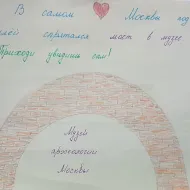 В самом Москвы под
лей спрятался мост в музее
Приходи увидишь сам!
Музей
археологии
Москвы